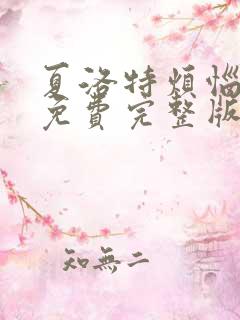 夏洛特烦恼
免費完整版
知無二